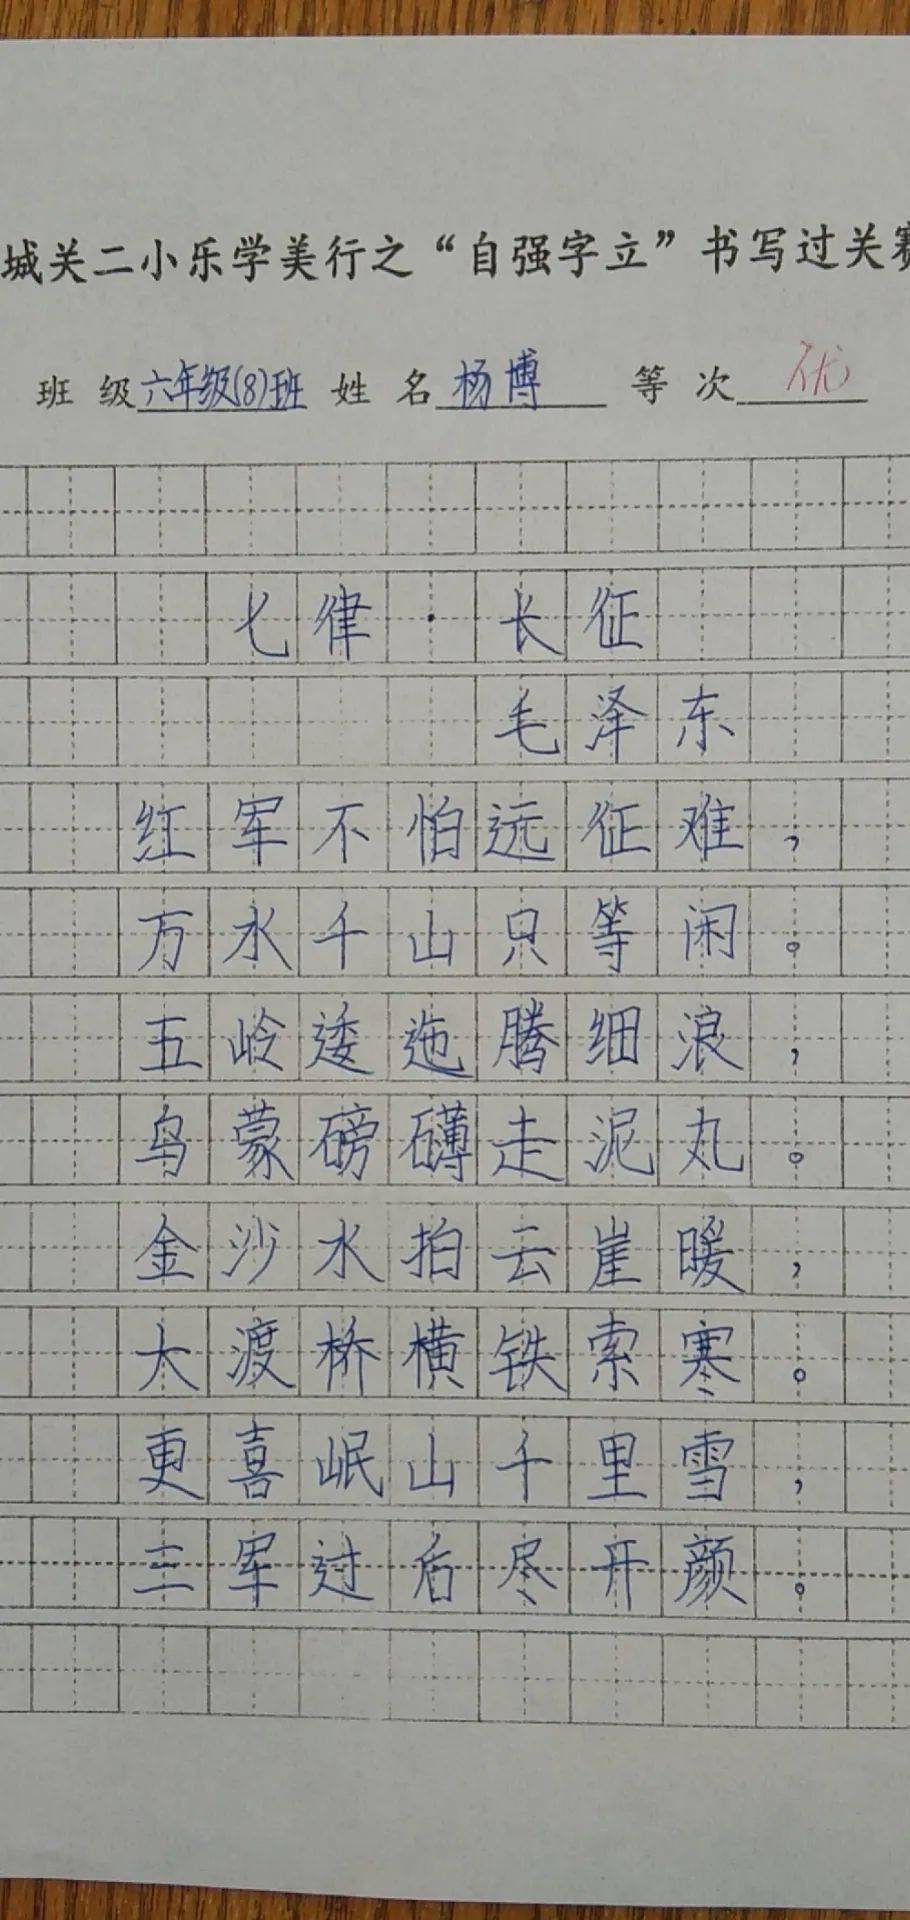 城关二小乐学美行之“自强字立”书写过关赛
班 级 六年级(8)班 姓 名 杨博 等 次 优
七律·长征
毛泽东
红军不怕远征难，
万水千山只等闲。
五岭逶迤腾细浪，
乌蒙磅礴走泥丸。
金沙水拍云崖暖，
大渡桥横铁索寒。
更喜岷山千里雪，
三军过后尽开颜。